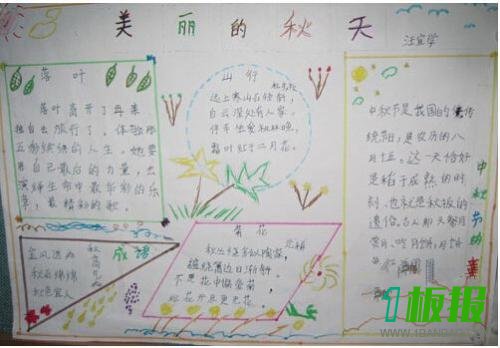 美丽的秋天
汪宜学
落叶
落叶离开了母亲
独自去旅行了。体验那
五彩缤纷的人生。她要
用自己最后的力量，去
演绎生命中最华彩的乐
章，最精彩的歌。
山行
杜牧
远上寒山石径斜，
白云深处有人家。
停车坐爱枫林晚，
霜叶红于二月花。
中秋节是我国的传
统节，是农历的八
月十五。这一天恰好
是稻子成熟的时
刻，也就是秋报的
遗俗。
中秋节的
成语
金风送爽
秋雨绵绵
秋色宜人
秋高气爽
菊花
元稹
秋丛绕舍似陶家，
遍绕篱边日渐斜。
不是花中偏爱菊，
此花开尽更无花。
1板报
WWW.1BANBAO.COM